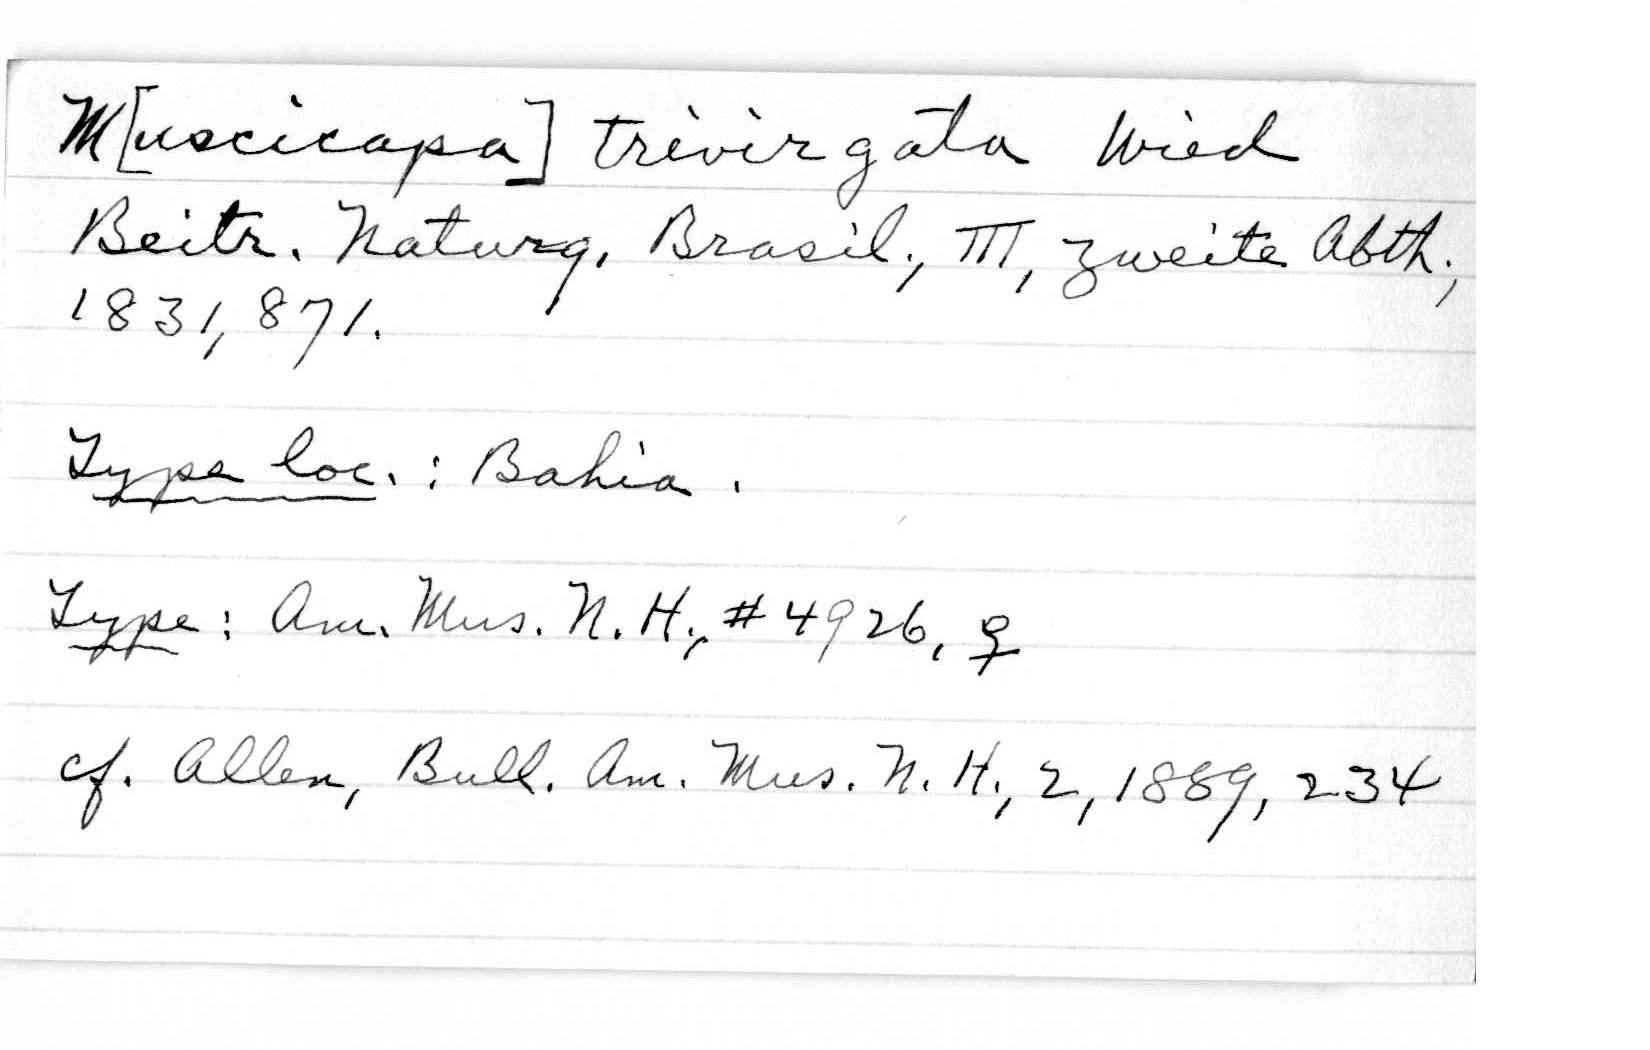 M[uscicapa] trivirgata Wied
Beitr. Naturg. Brasil., III, zweite Abth.,
1831, 871.
Type loc.: Bahia.
Type: Am. Mus. N. H., #4926, ♀
cf. Allen, Bull. Am. Mus. N. H., 2, 1889, 234